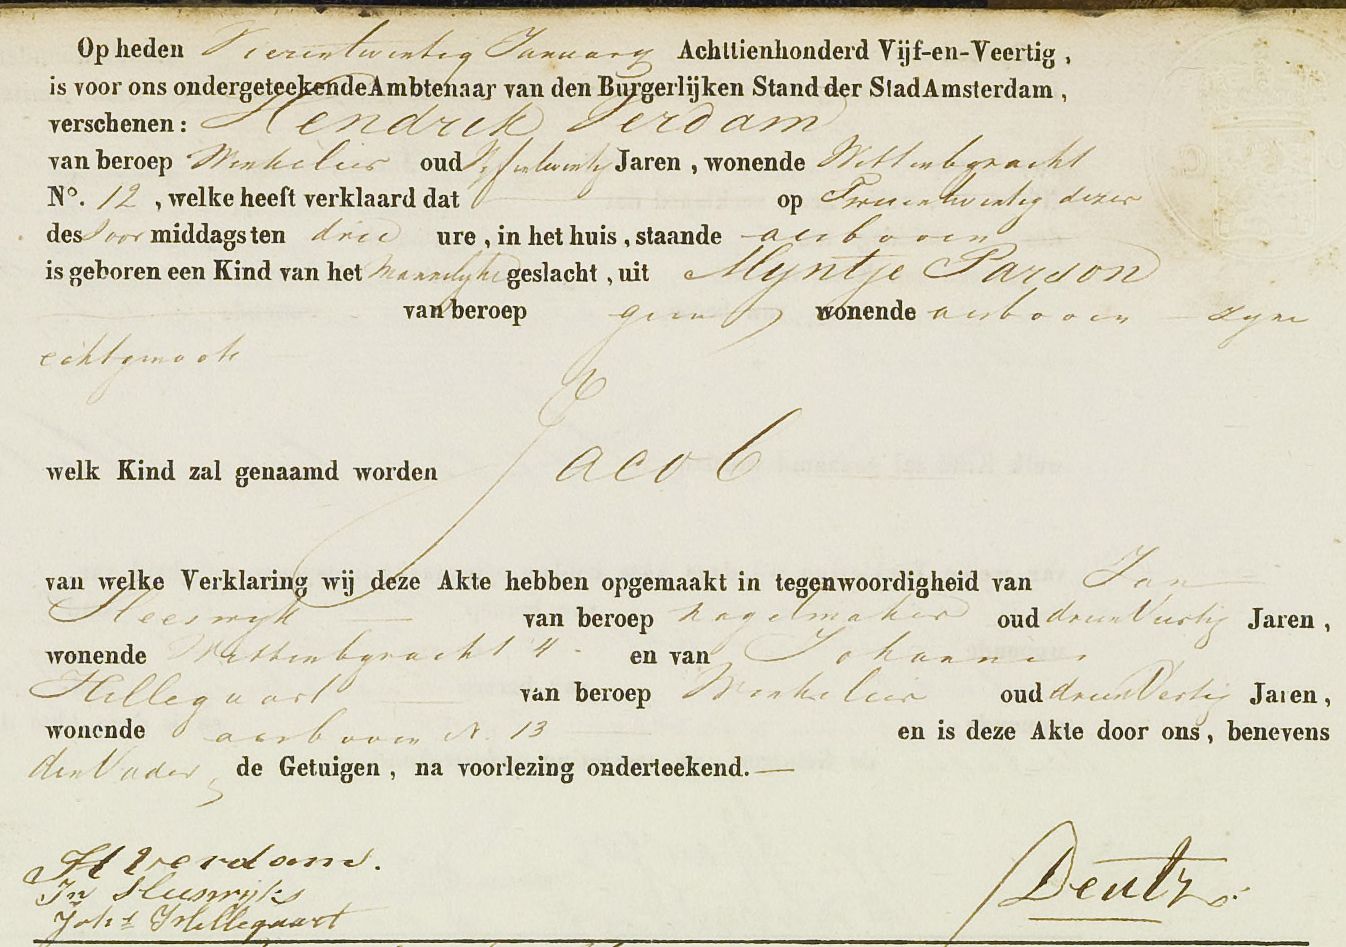 Op heden Vierentwintig January Achttienhonderd Vijf-en-Veertig,
is voor ons ondergeteekende Ambtenaar van den Burgerlijken Stand der Stad Amsterdam,
verschenen: Hendrik Verdam
van beroep Winkelier oud Vijfentwintig Jaren, wonende Wittenbgracht
No. 12, welke heeft verklaard dat op Tweentwintig dezer
des Voor middags ten drie ure, in het huis, staande alsboven
is geboren een Kind van het Mannelyke geslacht, uit Myntje Parson
van beroep geen wonende alsboven zyne
echtgenoote
welk Kind zal genaamd worden Jacob
van welke Verklaring wij deze Akte hebben opgemaakt in tegenwoordigheid van Jan
van beroep nagelmaker oud drieenVeertig Jaren,
wonende Wittenbgracht 4 en van Johannes
Hillegaart van beroep Winkelier oud drieenVeertig Jaren,
wonende alsboven N. 13 en is deze Akte door ons, benevens
den Vader, de Getuigen, na voorlezing onderteekend.
HVerdam.
Deutz
Joh.s Hillegaart